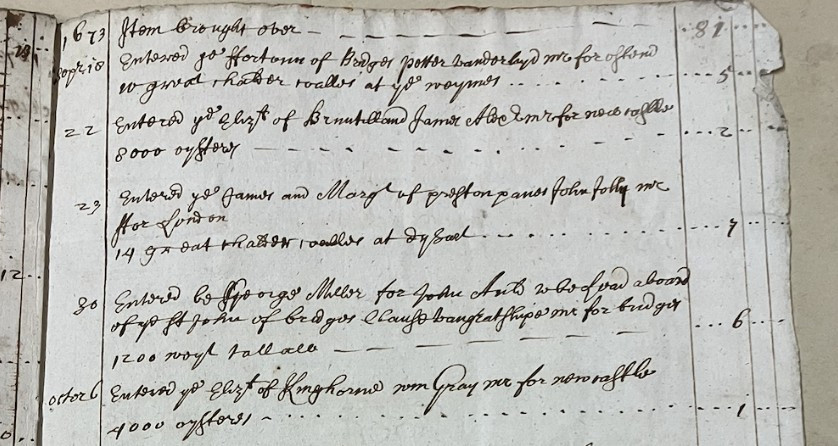 1673 Item brought over 81
Entered ye ffortoun of Bridges petter vanderluyd mr for ostend
10 great chalder coalles at ye weymes 5
22 Entered ye Elizt of Bruntilland James Alexr mr for newcastle
8000 oysteres 2
29 Entered ye James and Margt of preston panes John Jolly mr
ffor London
14 great chalder coalles at dysart 7
30 Entered be George Miller for John Auld to be put aboard
of ye St John of bridges mr for bridges 6
1200 tallow
octor 6 Entered ye Elizt of Kinghorne wm Gray mr for newcastle
4000 oysteres 1
12